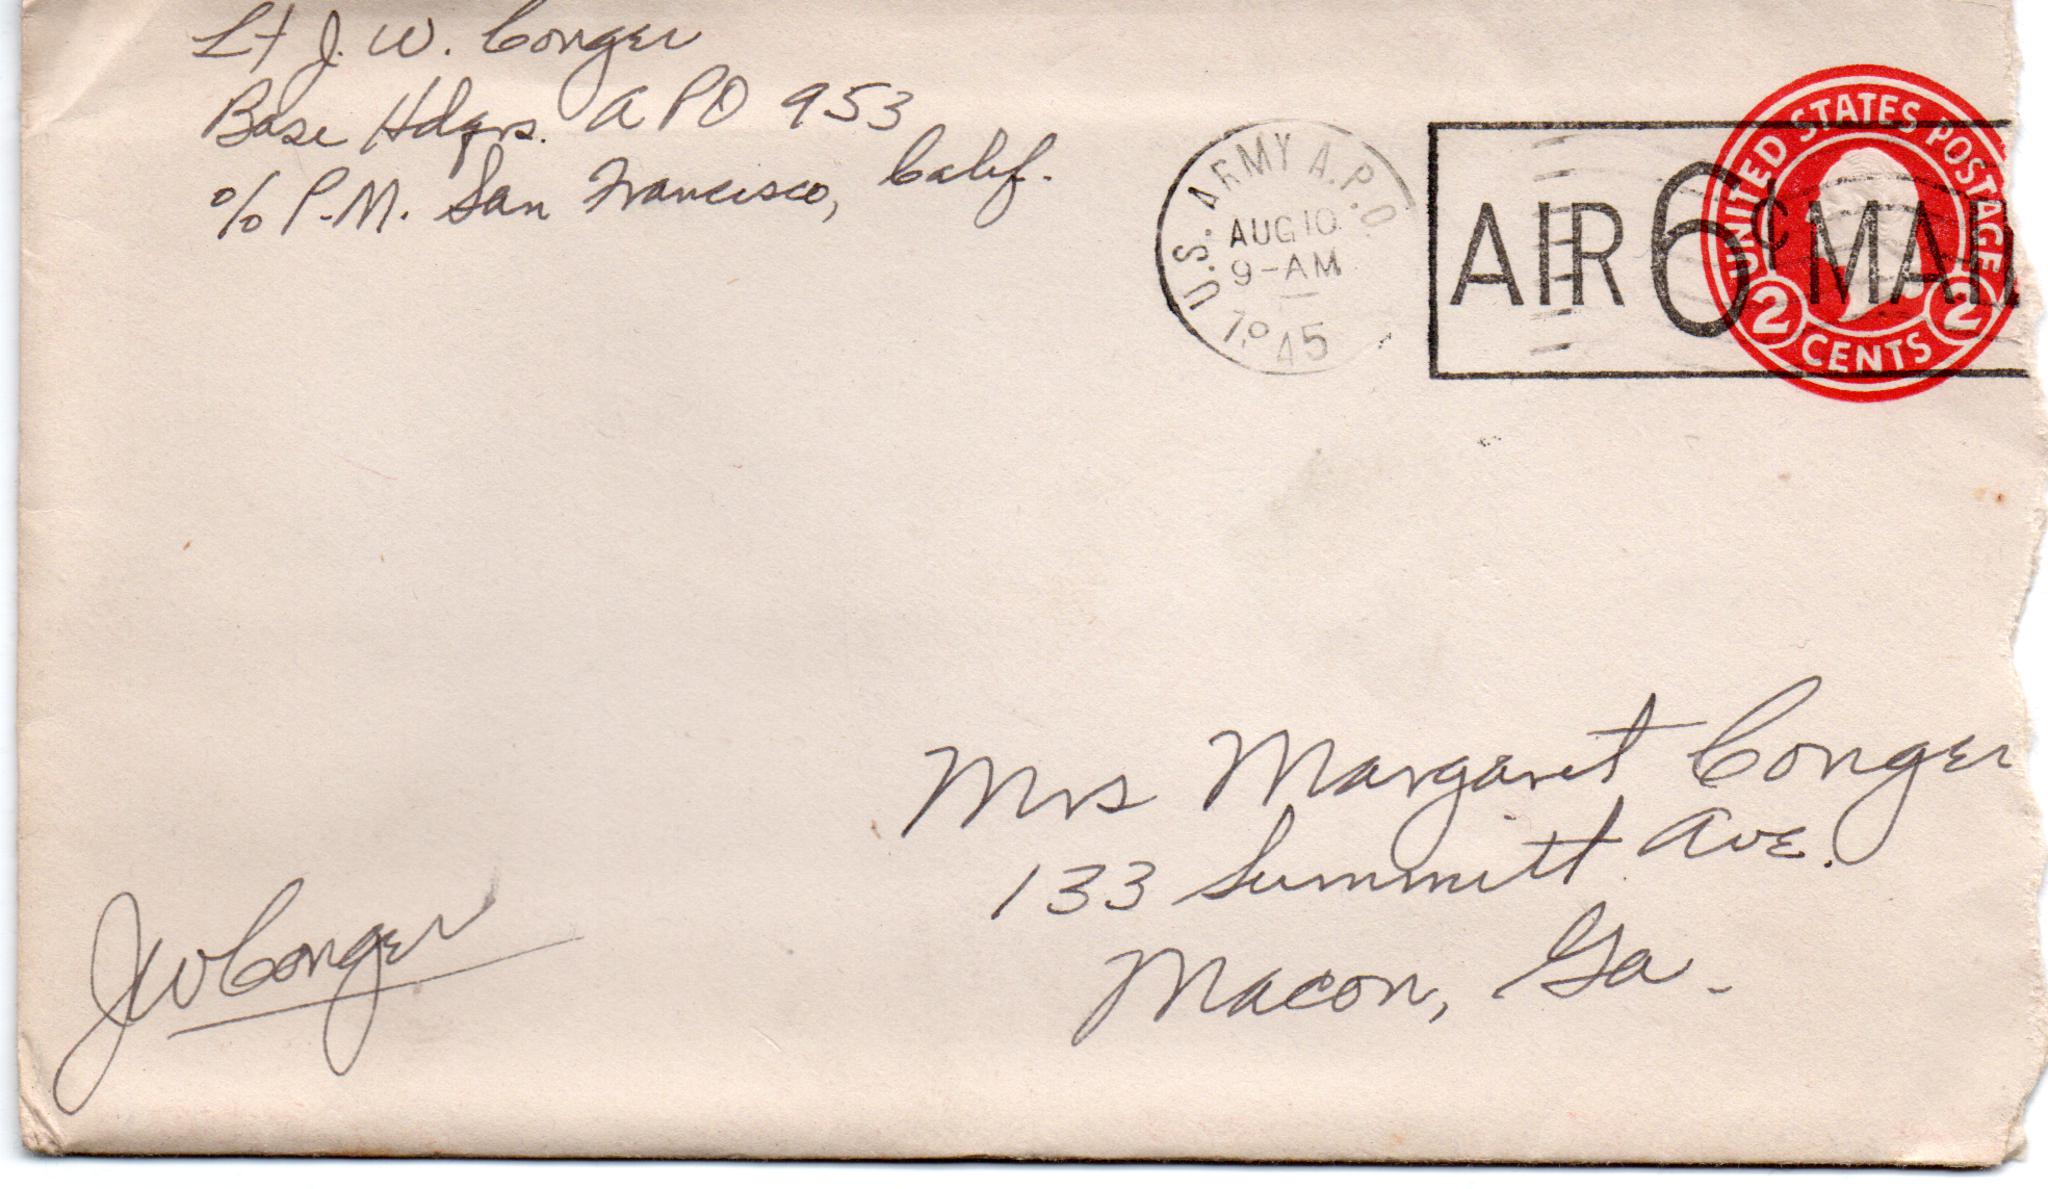 Lt J. W. Conger
Base Hdqrs. APO 953
c/o P.M. San Francisco, Calif.
U.S. ARMY A.P.O.
AUG 10
9-AM
1945
AIR 6¢ MAIL
UNITED STATES POSTAGE
2 2
CENTS
Mrs Margaret Conger
133 Summitt Ave.
Macon, Ga.
JWConger